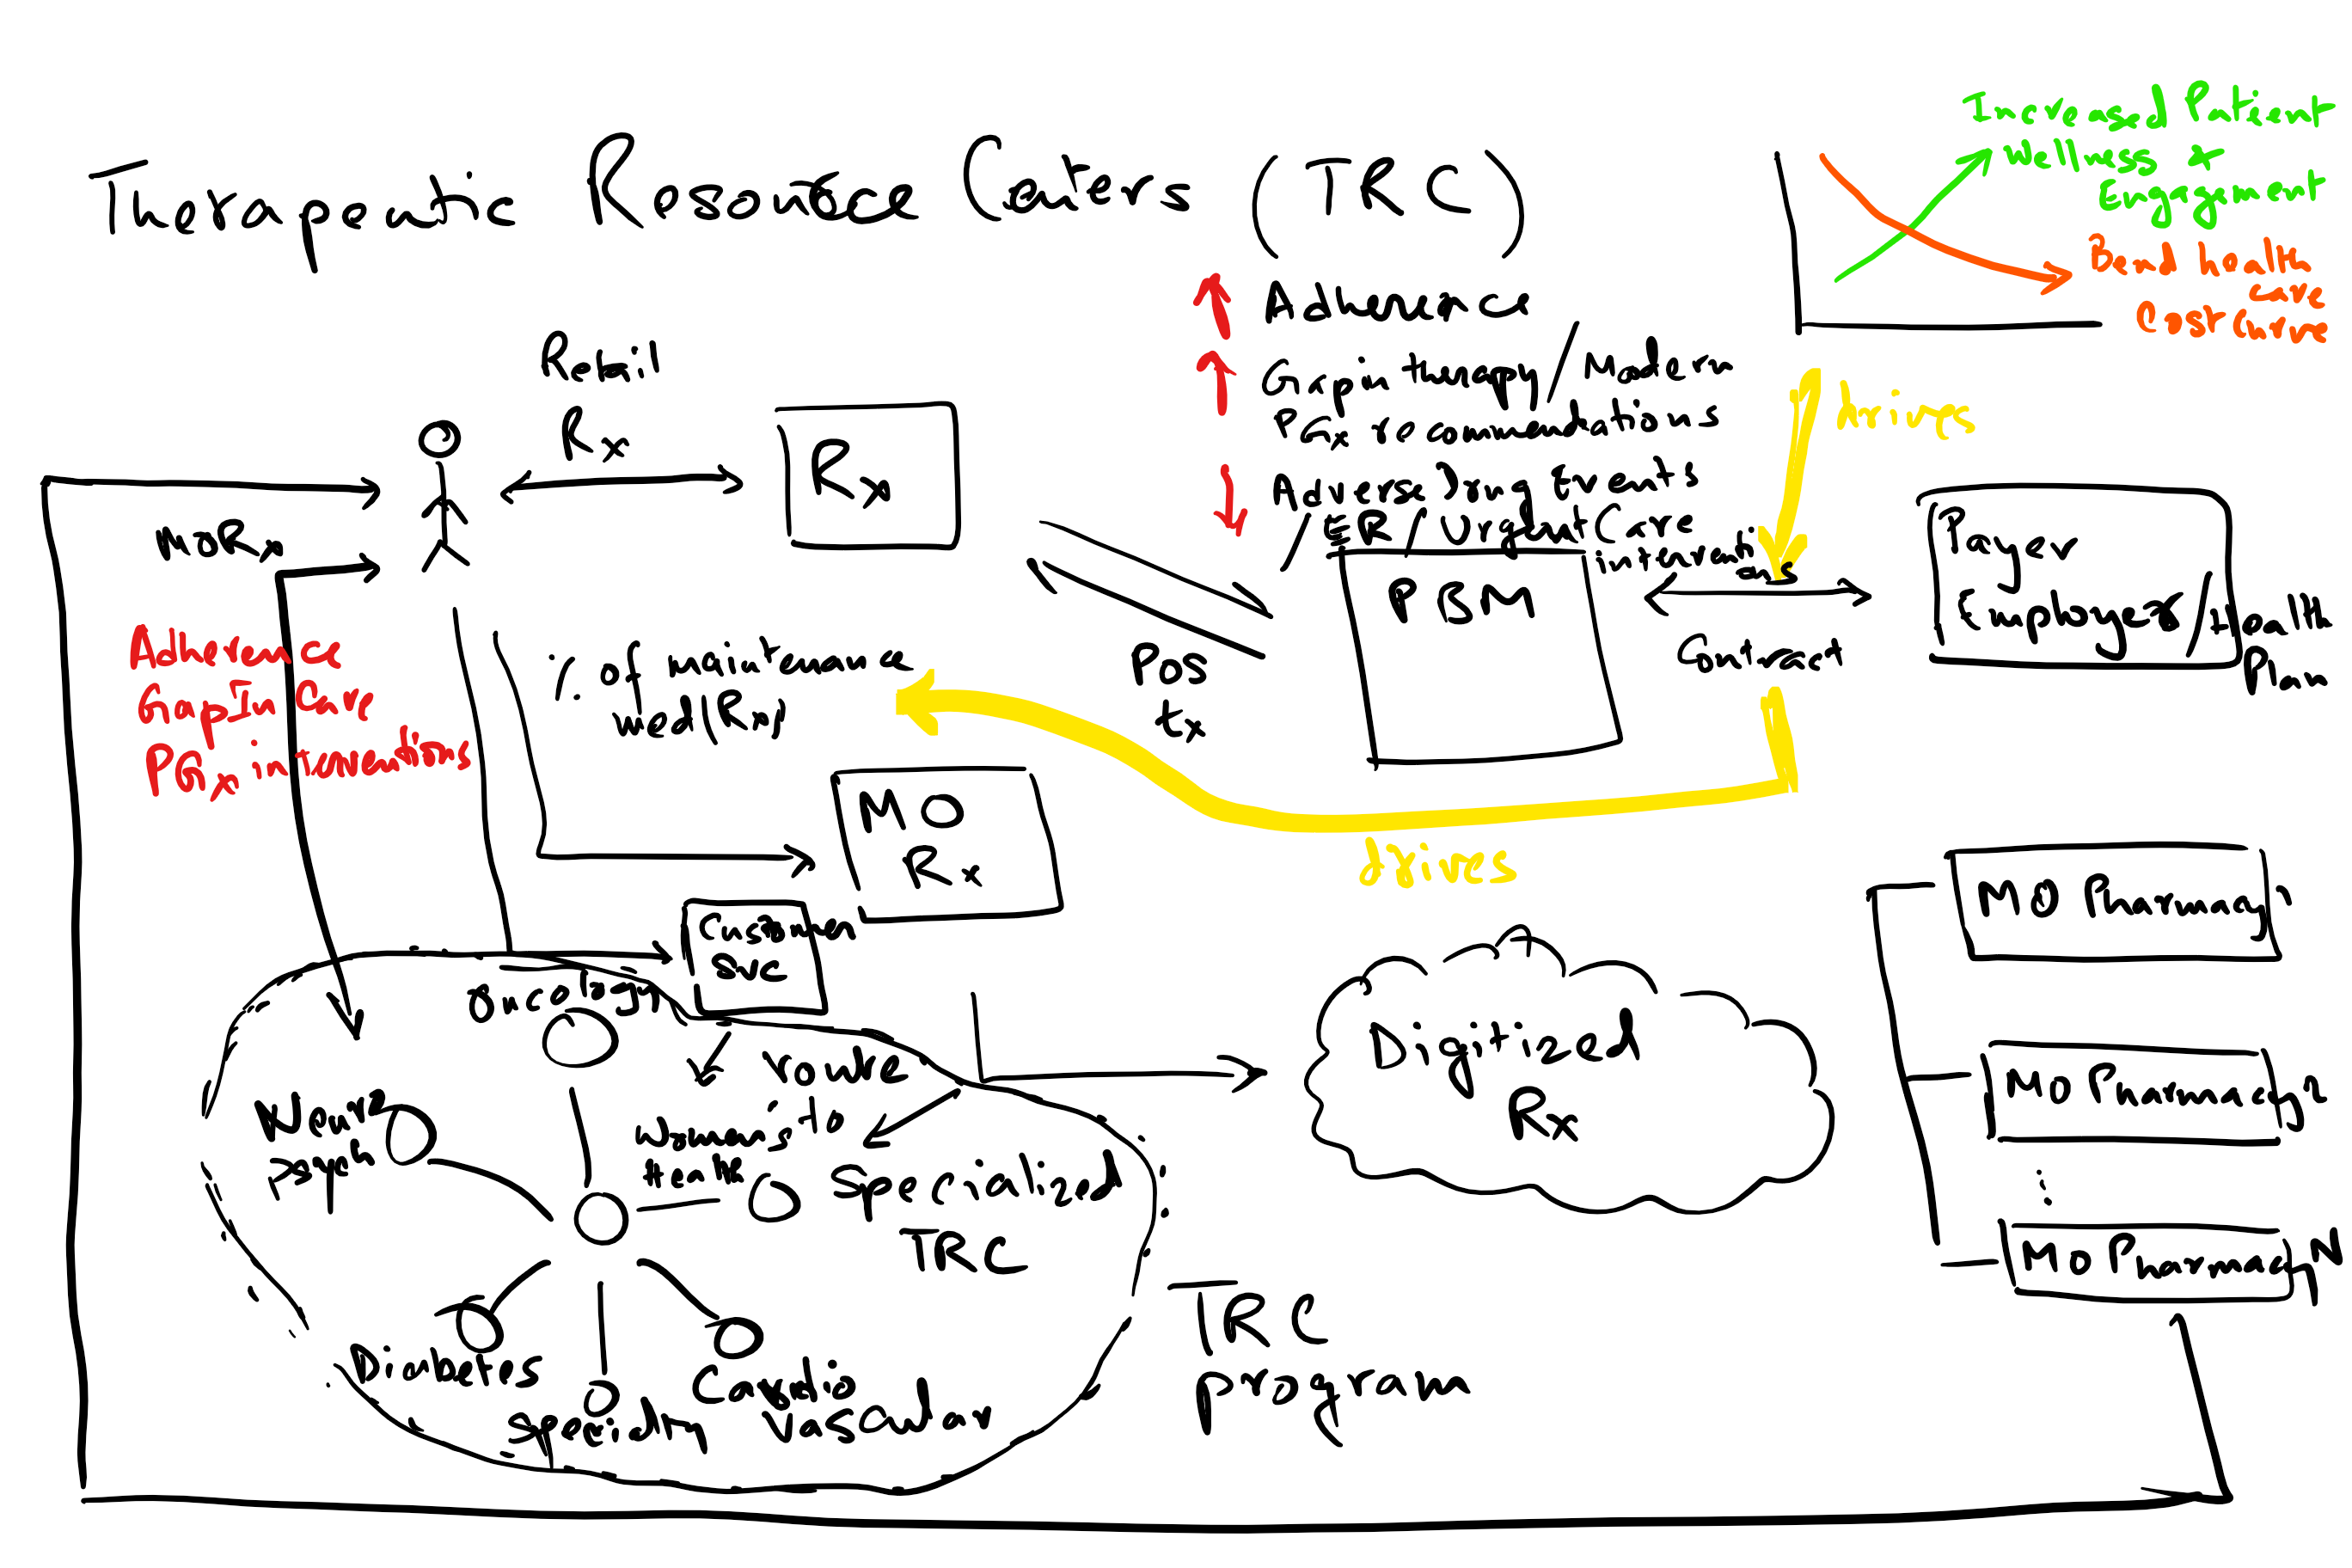 Therapeutic Resource Centers (TRC)
Increased Patient
Wellness &
Engagement
Bend health
care
Cost Curve
Adherence
Gap in therapy / Modern
PGx recommendations
Adverse Drug Events
ER / Urgent Care
interventions
Drives
Retail
Rx
Rx
MORx
Adherence
Gap In Care
PGx interventions
% of maintenance
med/Rx
POS
tx
PBM
Contract
Payer
Employer / Health
Plan
MO
Rx
drives
Customer
SVC
route
to
Specialized
TRC
Oncology
Neuro
Psych
Women's
Health
Diabetes
Specialty
Cardio
Vascular
TRC
program
Digitized
Rx
MO Pharmacy
MO Pharmacy
MO Pharmacy N